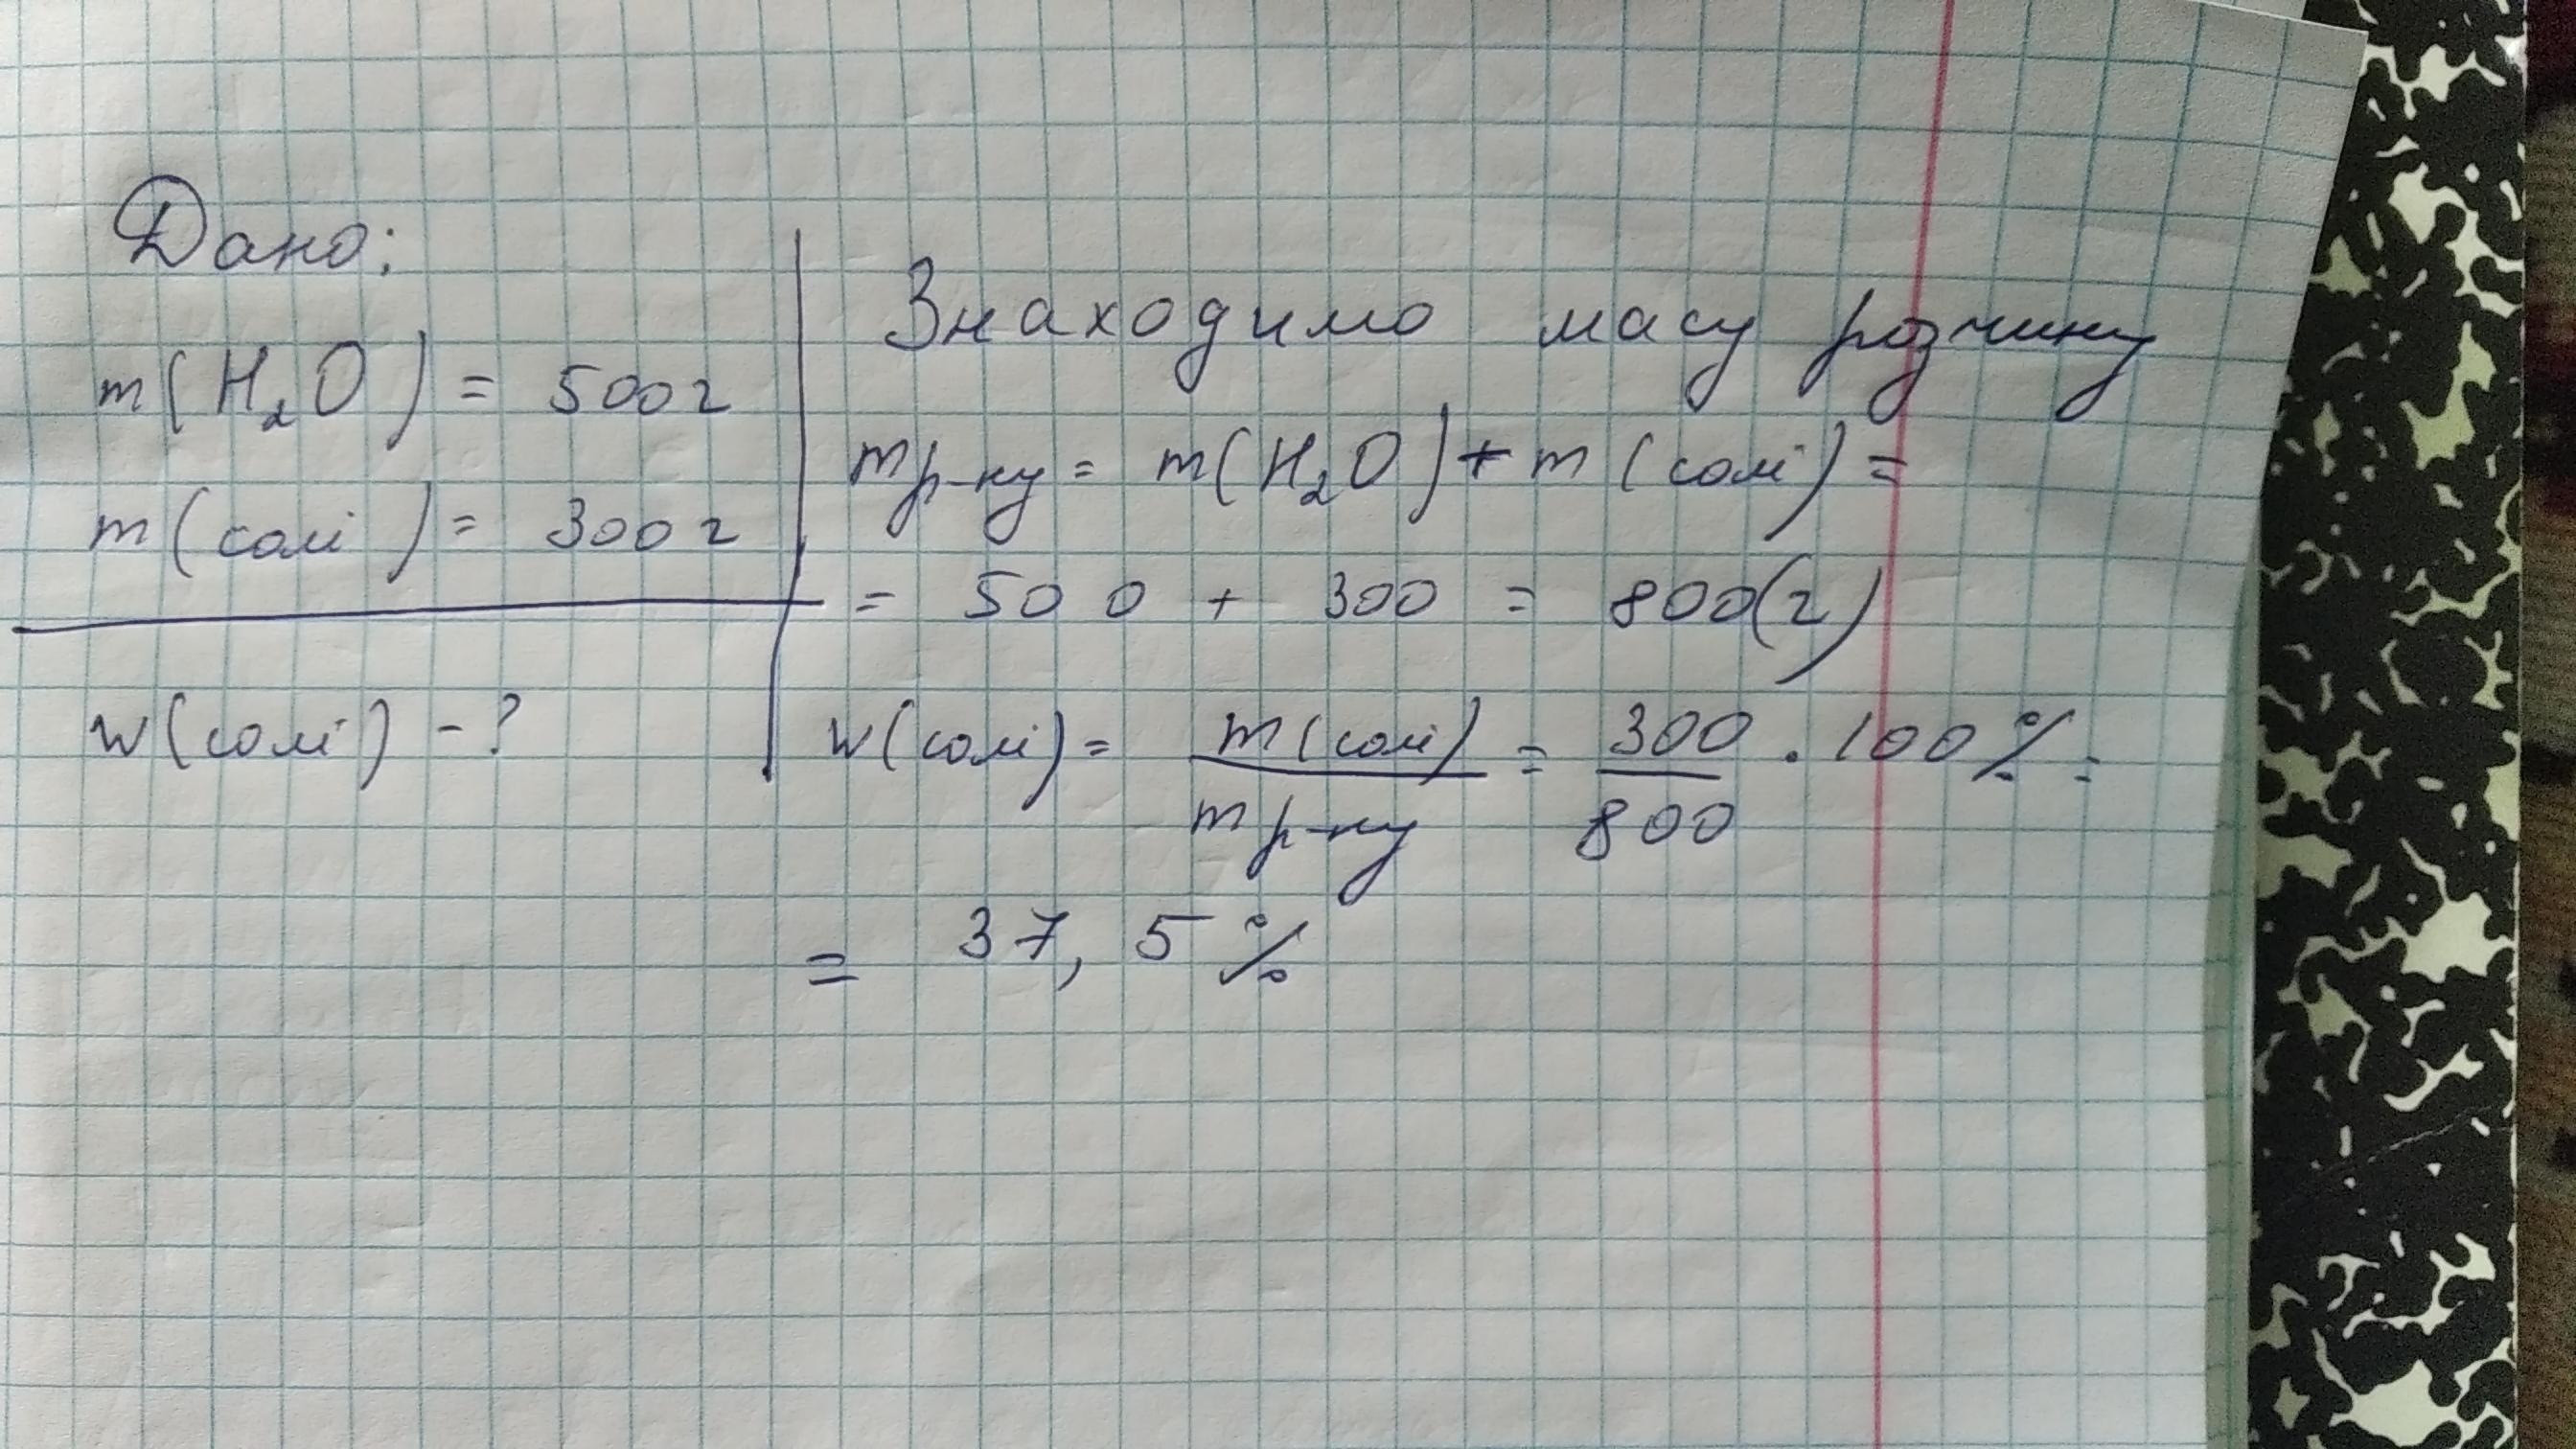 Дано:
m(H₂O) = 500г
m(солі) = 300г
w(солі) - ?
Знаходимо масу розчину
m р-ну = m(H₂O) + m(солі) =
= 500 + 300 = 800(г)
w(солі) = m(солі) / m р-ну = 300 / 800 · 100% =
= 37,5%